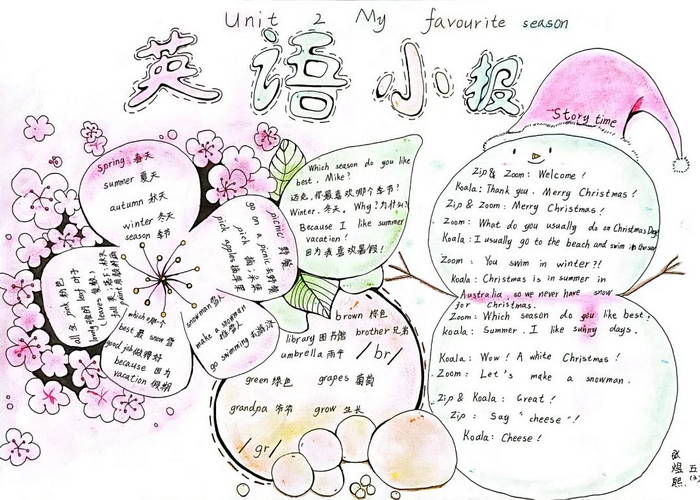 Unit 2 My favourite season
英语小报
spring 春天
summer 夏天
autumn 秋天
winter 冬天
season 季节
picnic 野餐
go on a picnic 去野餐
pick 摘;采集
pick apples 摘苹果
snowman 雪人
make a snowman
堆雪人
go swimming 去游泳
which 哪个
best 最 snow 雪
good job 做得好
because 因为
vacation 假期
all 全 pink 粉色
lovely 可爱的 leaf 叶子
Which season do you like
best, Mike?
迈克,你最喜欢哪个季节?
Winter. 冬天。 Why? 为什么?
Because I like summer
vacation!
因为我喜欢暑假!
brown 棕色
library 图书馆 brother 兄弟
umbrella 雨伞 /br/
green 绿色 grapes 葡萄
grandpa 爷爷 grow 生长
/gr/
Story time
Zip & Zoom: Welcome!
Koala: Thank you. Merry Christmas!
Zip & Zoom: Merry Christmas!
Zoom: What do you usually do on Christmas Day?
Koala: I usually go to the beach and swim in the sea
Zoom: You swim in winter?!
Koala: Christmas is in summer in
Australia, so we never have snow
for Christmas.
Zoom: Which season do you like best?
koala: Summer. I like sunny days.
Koala: Wow! A white Christmas!
Zoom: Let's make a snowman.
Zip & Koala: Great!
Zip: Say "cheese"!
Koala: Cheese!